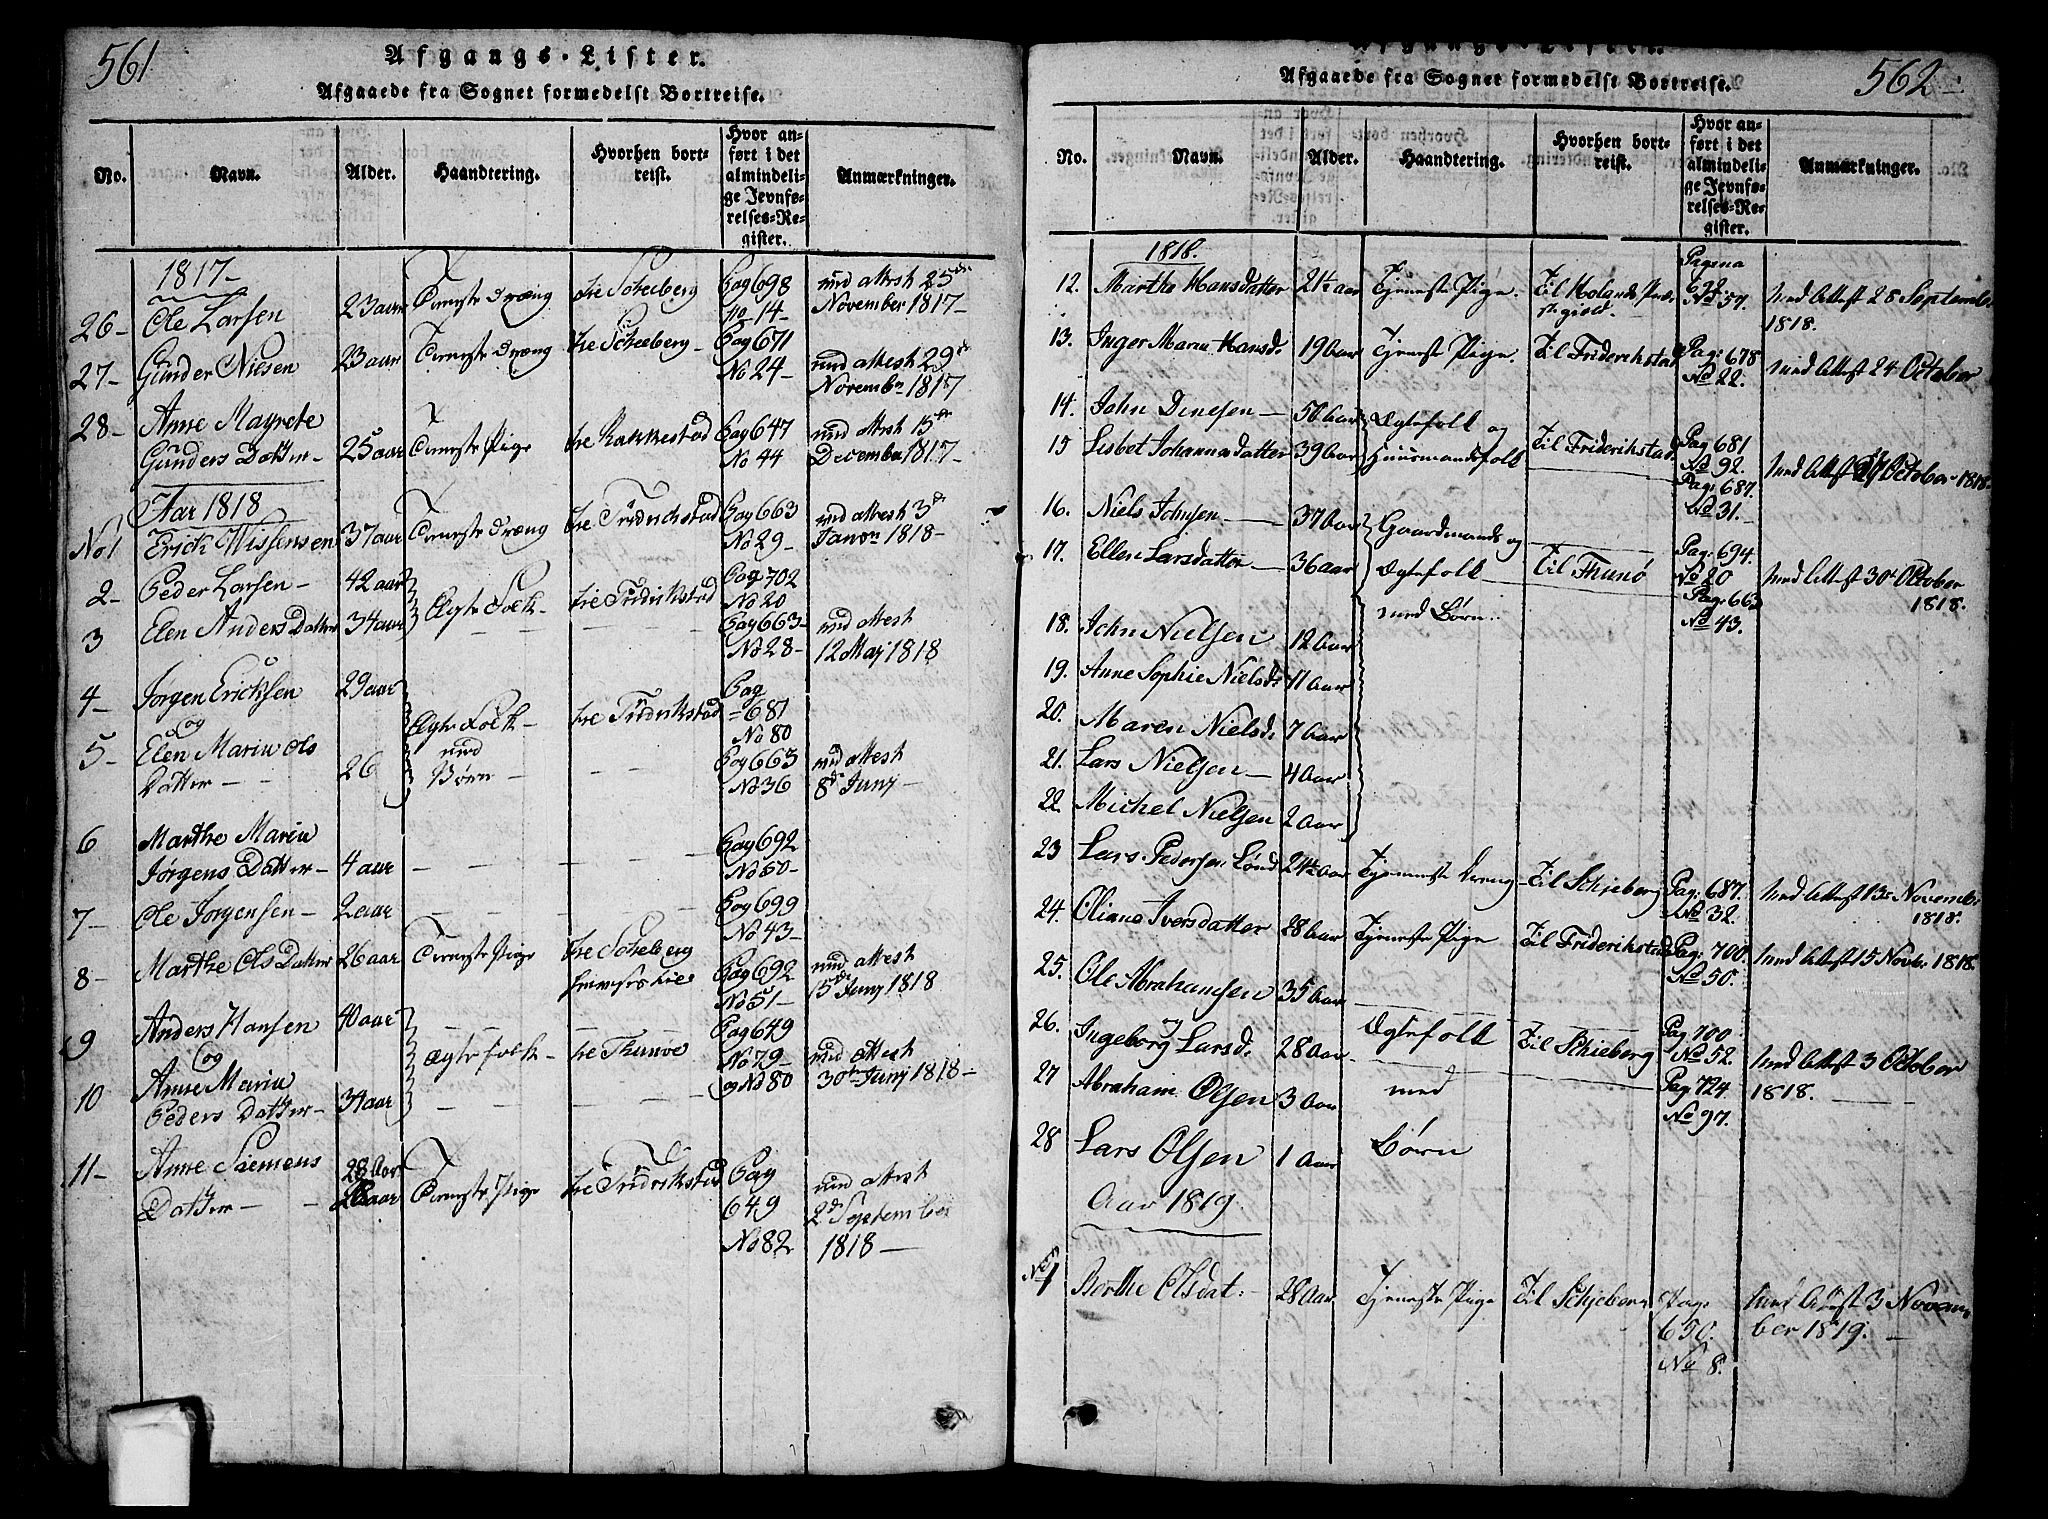 561
Afgangs-Lister.
Afgaaede fra Sognet formedelst Bortreise.
No.
Navn.
Alder.
Haandtering.
Hvorhen bort-
reist.
Hvor an-
ført i det
almindeli-
ge Jevnfø-
relses-Re-
gister.
Anmærkninger.
1817-
26- Ole Larsen 23 aar Tieneste Dræng Pag 698 No 14- med Attest 25de
November 1817-
27- Gunder Nielsen 23 aar Tieneste Dræng Pag 671 No 24- med Attest 29de
Novembr 1817
28- Anne Magrete
Gunders Datter- 25 aar Tieneste Pige Rakkestad Pag 647 No 44 med Attest 15de
December 1817-
Aar 1818
No 1 Erick 37 aar Tieneste Dræng Pag 663 No 29- med Attest 3de
Janr 1818-
2- Peder Larsen- 42 aar Ægte Folk- Pag 702 No 20
3 Elen Anders Datter 34 aar Pag 663- No 28- med Attest
12 Maj 1818
4- Jørgen Ericksen 29 aar Ægte Folk- Pag 681 No 80
og med
5- Elen Maria Ols
Datter- 26 Børn- Pag 663 No 36 med Attest
8de Junj-
6 Marthe Maria
Jørgens Datter- 4 aar Pag 692 No 50-
7- Ole Jørgensen- 2 aar Pag 699 No 43-
8- Marthe Ols Datter 26 aar Tieneste Pige Pag 692 No 51- med Attest
15de Junj 1818
9 Anders Hansen 40 aar Ægte Folk- Pag 649 No 79-
og og No 80 med Attest
30te Junj 1818-
10 Anne Maria
Peders Datter- 34 aar
11- Anne Siemens
Datter- 28 Aar Tieneste Pige Pag
649
No 82 med Attest
2de September
1818-
562
Afgangs-Lister.
Afgaaede fra Sognet formedelst Bortreise.
No.
Navn.
Alder.
Haandtering.
Hvorhen bort-
reist.
Hvor an-
ført i det
almindeli-
ge Jevnfø-
relses-Re-
gister.
Anmærkninger.
1818.
12. Marthe Hansdatter 21½ aar Tjeneste Pige. Til Holands Præ-
stegield. Pagina
692
No 57. Med Attest 28 September
1818.
13. Inger Marie Hansd. 19 Aar Tjeneste Pige. Til Friderikstad Pag: 678
No 22. Med Attest 24 October
14. John Dinesen- 50 Aar Ægtefolk og
15 Lisbet Johannesdatter 39 Aar Huusmandsfolk Til Friderikstad Pag 681
No 92.
Pag: 687.
No 31. Med Attest October 1818.
16. Niels Johnsen- 37 Aar Gaardmands og
17. Ellen Larsdatter- 36 aar Ægtefolk Til Thunø Pag: 694.
No 20
Pag: 663
No 43. Med Attest 30te October
1818.
med Børn.
18. John Nielsen 12 Aar
19. Anne Sophie Nielsd. 11 Aar
20. Maren Nielsd: 7 Aar
21. Lars Nielsen- 4 Aar
22. Michel Nielsen 2 Aar
23 Lars Pedersen Lund 24½ aar Tjeneste Dreng- Til Schjeberg Pag: 687.
No 32. Med Attest 13de November
1818.
24. Oliane Iversdatter 28 Aar Tjeneste Pige Til Friderikstad Pag: 700.
No 50. Med Attest 15 Novbr 1818.
25. Ole Abrahamsen 35 Aar
og
26. Ingeborg Larsd. 28 Aar Ægtefolk Til Schieberg Pag 700
No 52. Med Attest 3 October
1818.
27 Abraham Olsen 3 Aar med Pag 724.
No 97.
28 Lars Olsen 1 Aar Børn
Aar 1819.
No 1 Berthe Olsdat: 28 Aar Tjeneste Pige Til Schjeberg Pag
650.
No 8. Med Attest 3 Novem-
ber 1819.